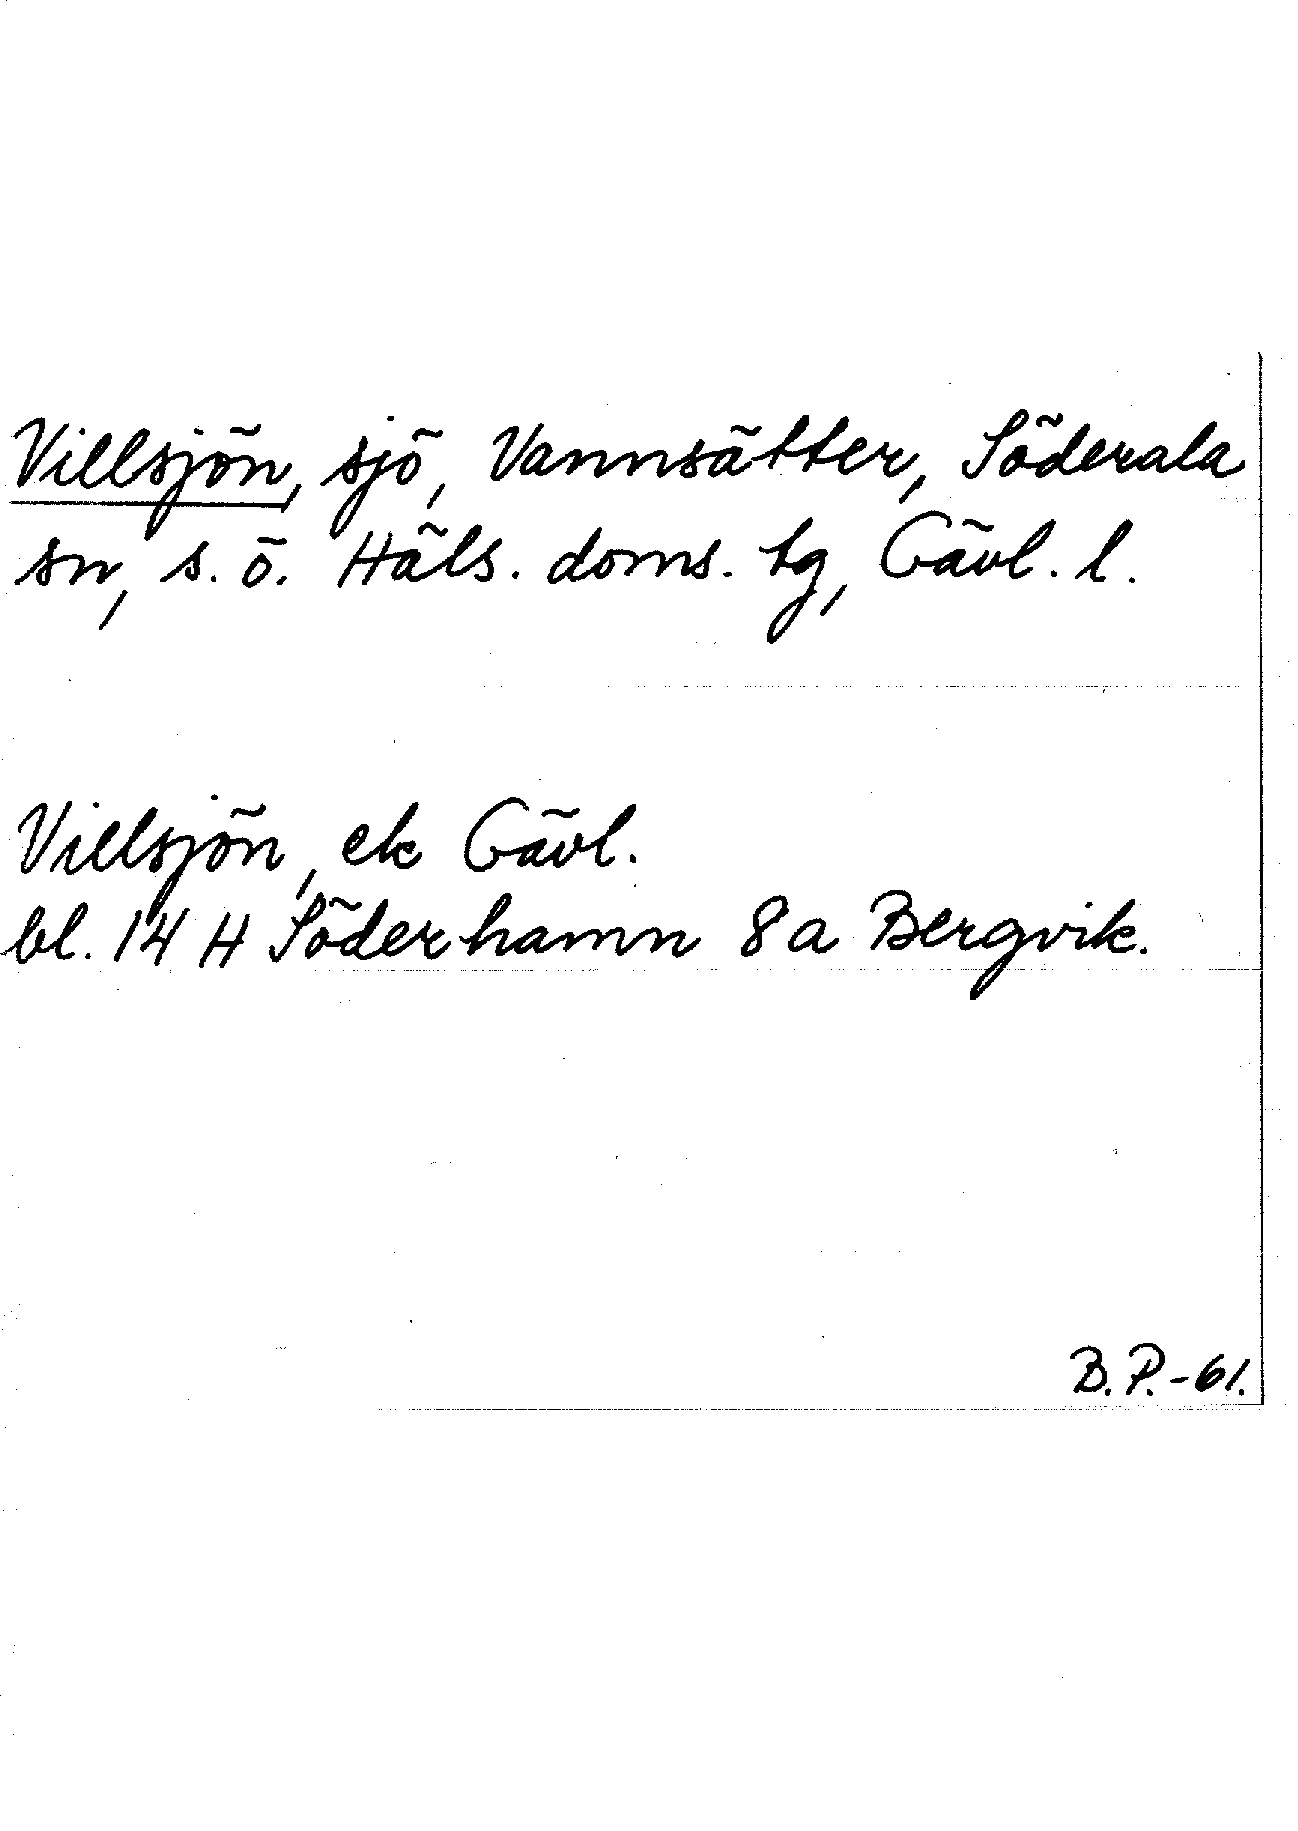 Villsjön, sjö, Vannsätter, Söderala
sn, s. ö. Häls. doms. tg, Gävl. l.
Villsjön, ek Gävl.
bl. 14 H Söderhamn 8a Bergvik.
B.P.-61.